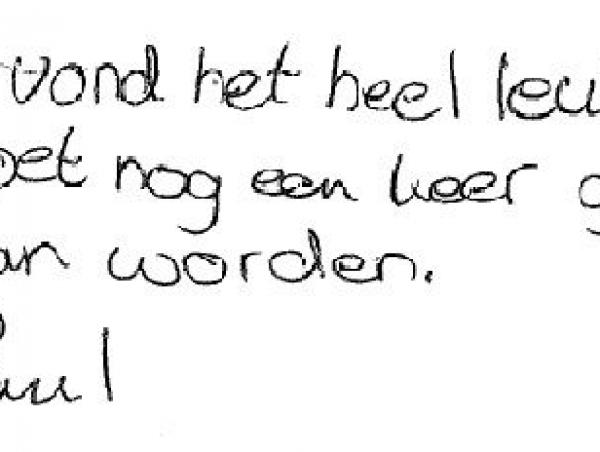 vond het heel leu
oet nog een keer g
an worden.
Paul